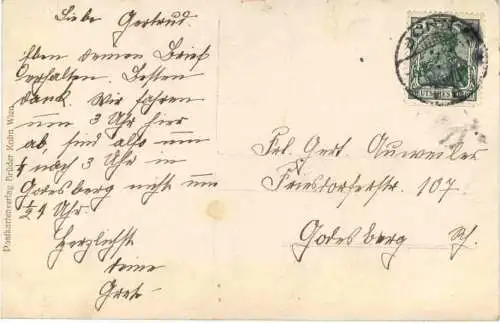 Liebe Gertrud.
Eben deinen Brief
erhalten. Besten
dank. Wir fahren
um 3 Uhr hier
ab sind also um
1/4 nach 3 Uhr in
Godesberg nicht um
1/2 4 Uhr.
Herzlichst
deine
Grete
Frl. Gert. Auweiler
Friesdorferstr. 107
Godesberg Rh.
Postkartenverlag Brüder Kohn Wien.